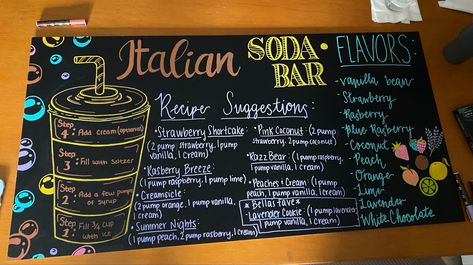 Italian SODA BAR
FLAVORS:
Recipe Suggestions:
Step 4: Add cream (optional)
Step 3: Fill with Seltzer
Step 2: Add a few pumps of syrup
Step 1: Fill 3/4 cup with ice
• Strawberry Shortcake:
(2 pump strawberry, 1 pump
vanilla, 1 cream)
• Rasberry Breeze
(1 pump raspberry, 1 pump lime)
• Creamsicle:
(2 pump orange, 1 pump vanilla, 1
cream)
• Summer Nights:
(1 pump peach, 2 pump rasberry, 1 cream)
• Pink Coconut: (2 pump
strawberry, 2 pump coconut)
• Razz Bean: (1 pump raspberry,
1 pump vanilla, 1 cream)
• Peaches + Cream: (1 pump
peach, 1 pump vanilla, 1 cream)
* Bella's Fave *
Lavender Cookie: (1 pump lavender,
1 pump vanilla, 1 cream)
-vanilla bean
-Strawberry
-Rasberry
-Blue Rasberry
-Coconut
-Peach
-Orange
-Lime
-Lavender
-White Chocolate